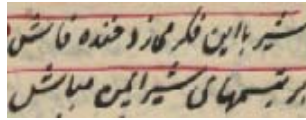 شیر با این فکر میزد خنده فاش
بر تبسمهای شیر ایمن مباش